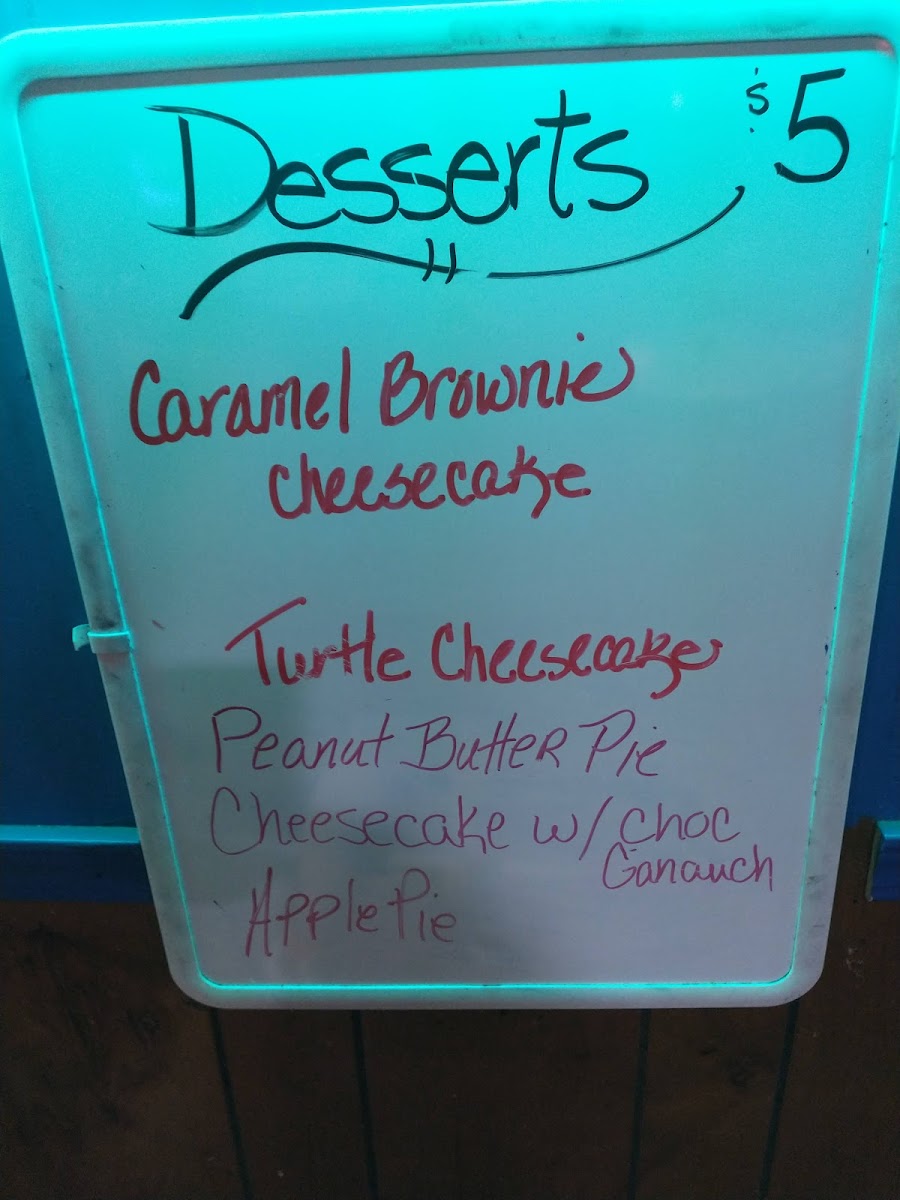 Desserts $5
Caramel Brownie
cheesecake
Turtle Cheesecake
Peanut Butter Pie
Cheesecake w/ choc
Ganauch
Apple Pie